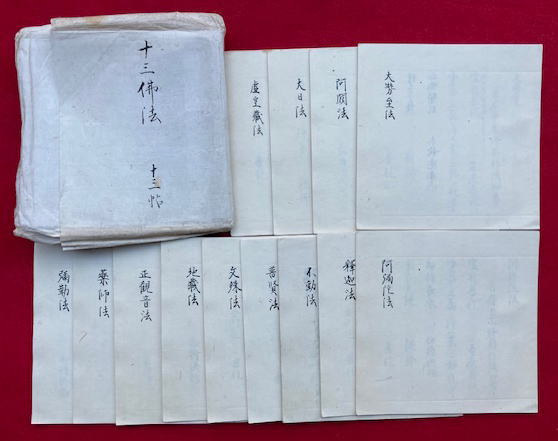 十三佛法
十三帖
大勢至法
阿閦法
大日法
虚空蔵法
阿弥陀法
釋迦法
不動法
普賢法
文殊法
地蔵法
正観音法
藥師法
弥勒法